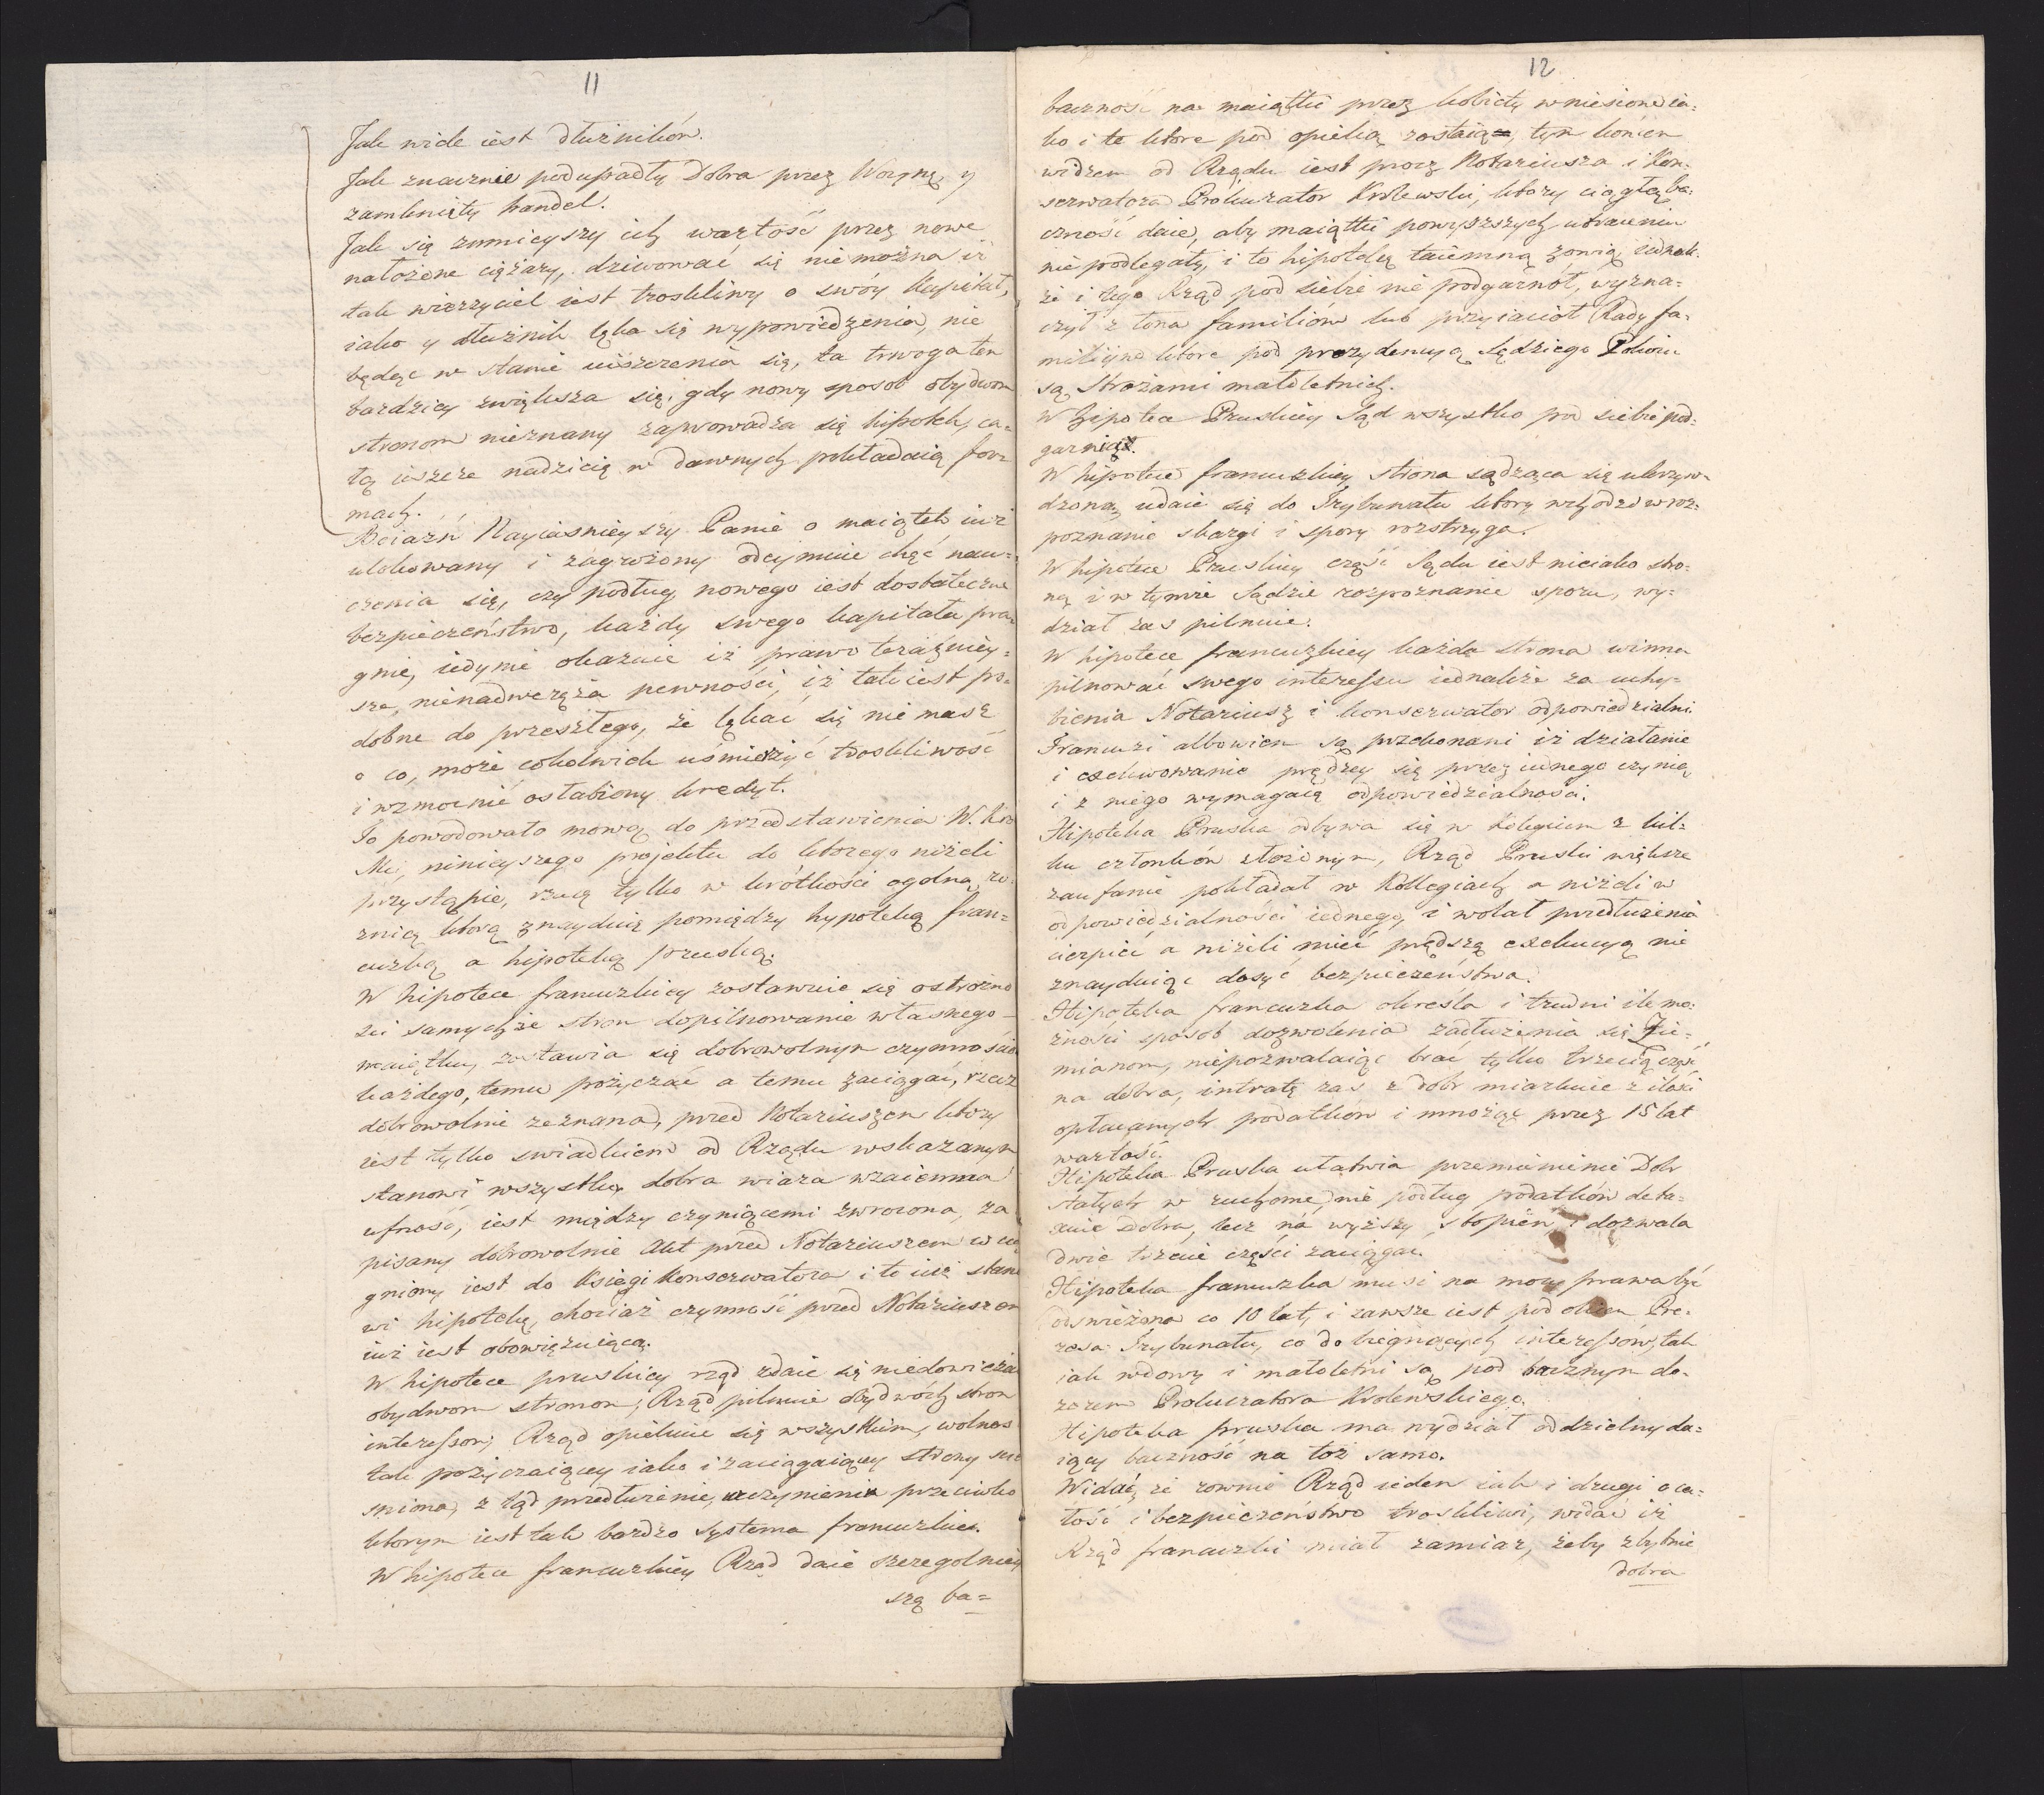 11
Jak wiele iest dłużników.
Jak znacznie podupadły Dobra przez Woynę y
zamknięty handel.
Jak się zmnieyszy ich wartość przez nowe
nałożone ciężary, dziwować się nie można iż
tak wierzyciel iest troskliwy o swóy Kapitał,
iako y dłużnik lęka się wypowiedzenia, nie
będąc w stanie uiszczenia się, ta trwoga ten
bardziey zwiększa się, gdy nowy sposob obydwom
stronom nieznany zaprowadza się hipotek, ca=
łą ieszcze nadzieię w dawnych pokładaią for=
mach.
Boiaźń Nayiaśnieyszy Panie o maiątek iuż
ulokowany i zagrożony odeymuie chęć nau=
czenia się, czy podług nowego iest dostateczne
bezpieczeństwo, każdy swego kapitału pra=
gnie, iedynie okazanie iż prawo teraźniey=
sze, nienadweręża pewności, iż tak iest po=
dobne do przeszłego, że lękać się nie masz
o co, może cokolwiek uśmierzyć troskliwość
i wzmocnić osłabiony kredyt.
To powodowało mową do przedstawienia W. Kró
Mci, ninieyszego projektu do ktorego niżeli
przystąpię, rzucę tylko w krótkości ogolną ró
żnicę którą znayduię pomiędzy hypoteką fran=
cuzką a hipoteką pruską.
W hipotece francuzkiey zostawuie się ostrożno
ści samychże stron dopilnowanie własnego
maiątku, zostawia się dobrowolnym czynnościo
każdego, temu pożyczać a temu zaciągać, rzecz
dobrowolnie zeznana, przed Notariuszem ktory
iest tylko swiadkiem od Rządu wskazanym
stanowi wszystko, dobra wiara wzaiemna
ufność, iest między czyniącemi zwrocona, za
pisany dobrowolnie Akt przed Notariuszem wcią
gniony iest do Księgi Konserwatora i to iuż stano
wi hipotekę, chociaż czynność przed Notariuszem
iuż iest obowiązuiącą.
W hipotece pruskiey rząd zdaie się niedowierza
obydwom stronom; Rząd pilnuie obydwóch stron
interessow; Rząd opiekuie się wszystkim, wolnos
tak pożyczaiącey iako i zaciągaiącey strony
sniona, z tąd przedłużenie, uczynienia przeciwko
ktorym iest tak bardzo systema francuzkie.
W hipotece francuzkiey Rząd daie szczegolniey
szą ba=
12
baczność na maiątki przez kobiety wniesione ia=
ko i te które pod opieką zostaią, tym końcem
widzem od Rządu iest procz Notariusza i Kon=
serwatora Prokurator Krolewski, ktory ciągłą ba=
czność daie, aby maiątki powyższych utraceniu
nie podlegały, i to hipoteką taiemną zowią, iednak=
że i tego Rząd pod siebie nie podgarnoł, wyzna=
czył z łona familiów lub przyiaciół Rady fa=
miliyne ktore pod prezydencyą Sędziego Pokoiu
są Strożami małoletnich.
W hipotece Pruskiey Sąd wszystko pod siebie pod=
garnia.
W hipotece francuzkiey strona sądząca się ukrzyw=
dzoną, udaie się do Trybunału ktory wchodzi w roz=
poznanie skargi i spory rozstrzyga.
W hipotece Pruskiey część Sądu iest nieiako stro=
ną i w tymże Sądzie rozpoznanie sporu, wy=
dział zas pilnuie.
W hipotece francuzkiey każda strona winna
pilnować swego interessu iednakże za uchy=
bienia Notariusz i konserwator odpowiedzialni.
Francuzi albowiem są przekonani iż działanie
i exekwowanie prędzey się przez iednego czynią
i z niego wymagaią odpowiedzialności.
Hipoteka Pruska odbywa się w Kolegium z kil=
ku członków złożonym, Rząd Pruski większe
zaufanie pokładał w Kollegiach a niżeli w
odpowiedzialności iednego, i wolał przedłużenia
cierpieć a niżeli mieć prędszą exekucyą nie
znayduiąc dosyć bezpieczeństwa.
Hipoteka francuzka określa i trudni ile mo=
żności sposób dozwolenia zadłużenia się Zie=
mianom, niepozwalaiąc brać tylko trzecią część
na dobra, intratę zas z dobr miarkuie z ilości
opłacanych podatków i mnożąc przez 15 lat
wartość.
Hipoteka Pruska ułatwia przemienienie Dobr
stałych w ruchome, nie podług podatków deta=
xuie Dobra, lecz na wyższy stopień i dozwala
dwie trzecie części zaciągać.
Hipoteka francuzka musi na mocy prawa być
odswieżona co 10 lat, i zawsze iest pod okiem Pre=
zesa Trybunału, co do biegnących interessów, tak
iak wdowy i małoletni są pod bacznym do=
zorem Prokuratora Krolewskiego.
Hipoteka pruska ma wydział oddzielny da=
iący baczność na toż samo.
Widać, że rownie Rząd ieden iak i drugi o ca=
łość i bezpieczeństwo troskliwi, widać iż
Rząd francuzki miał zamiar, żeby zbytnie
dobra